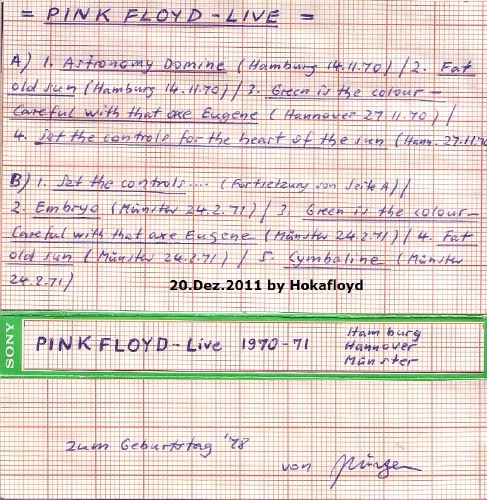 = PINK FLOYD - LIVE =
A) 1. Astronomy Domine (Hamburg 14.11.70) / 2. Fat
old sun (Hamburg 14.11.70) / 3. Green is the colour -
Careful with that axe Eugene (Hannover 27.11.70) /
4. Set the controls for the heart of the sun (Hann. 27.11.70
B) 1. Set the controls .... (Fortsetzung von Seite A) /
2. Embryo (Münster 24.2.71) / 3. Green is the colour -
Careful with that axe Eugene (Münster 24.2.71) / 4. Fat
old sun (Münster 24.2.71) / 5. Cymbaline (Münster
24.2.71)
20.Dez.2011 by Hokafloyd
SONY
PINK FLOYD - Live 1970-71
Hamburg
Hannover
Münster
zum Geburtstag '78
von Jürgen